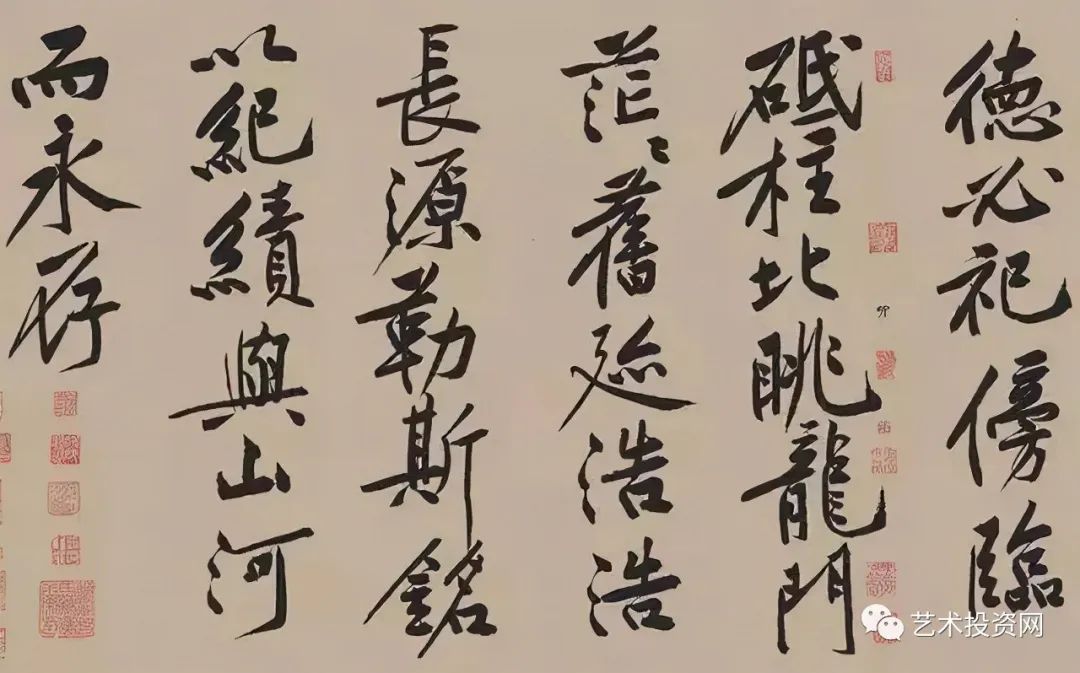 德必祀傍臨
砥柱北眺龍門
茫〻舊迹浩浩
長源勒斯銘
以紀績與山河
而永存
艺术投资网